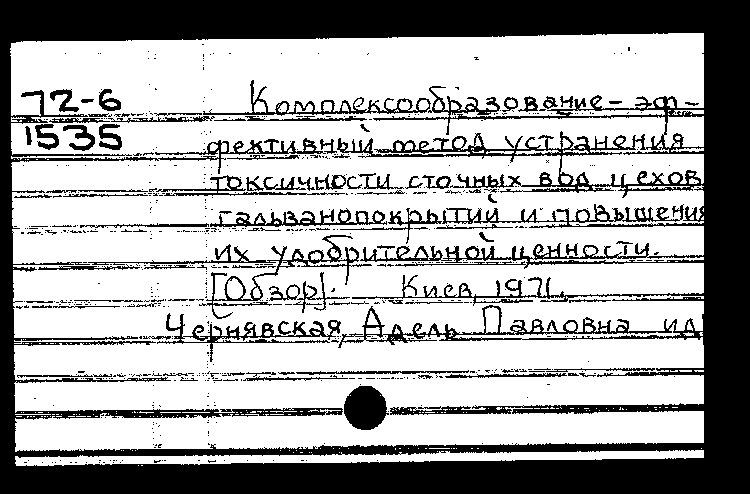 72-6
1535
Комплексообразование - эф-
фективный метод устранения
токсичности сточных вод цехов
гальванопокрытий и повышения
их удобрительной ценности.
[Обзор]. Киев, 1971.
Чернявская, Адель Павловна и др